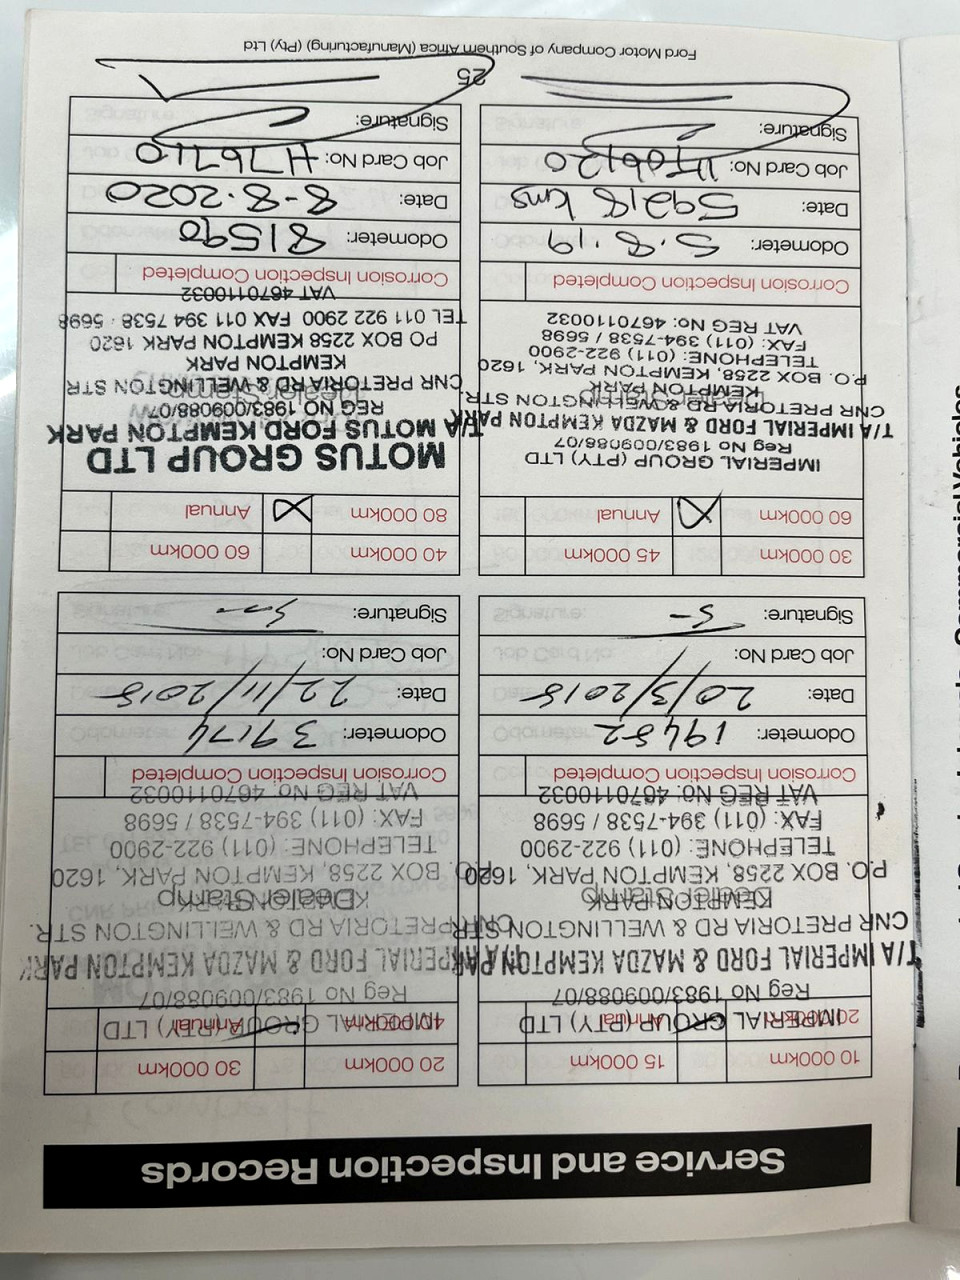 Service and Inspection Records
10 000km 15 000km
20 000km Annual
IMPERIAL GROUP (PTY) LTD
Reg No 1983/009088/07
T/A IMPERIAL FORD & MAZDA KEMPTON PARK
CNR PRETORIA RD & WELLINGTON STR.
KEMPTON PARK
Dealer Stamp
P.O. BOX 2258, KEMPTON PARK, 1620
TELEPHONE: (011) 922-2900
FAX: (011) 394-7538 / 5698
VAT REG No: 4670110032
Corrosion Inspection Completed
Odometer: 19452
Date: 20/3/2018
Job Card No:
Signature:
20 000km 30 000km
40 000km Annual
IMPERIAL GROUP (PTY) LTD
Reg No 1983/009088/07
T/A IMPERIAL FORD & MAZDA KEMPTON PARK
CNR PRETORIA RD & WELLINGTON STR.
KEMPTON PARK
Dealer Stamp
P.O. BOX 2258, KEMPTON PARK, 1620
TELEPHONE: (011) 922-2900
FAX: (011) 394-7538 / 5698
VAT REG No: 4670110032
Corrosion Inspection Completed
Odometer: 39174
Date: 22/11/2018
Job Card No:
Signature:
30 000km 45 000km
60 000km Annual
IMPERIAL GROUP (PTY) LTD
Reg No 1983/009088/07
T/A IMPERIAL FORD & MAZDA KEMPTON PARK
CNR PRETORIA RD & WELLINGTON STR.
KEMPTON PARK
Dealer Stamp
P.O. BOX 2258, KEMPTON PARK, 1620
TELEPHONE: (011) 922-2900
FAX: (011) 394-7538 / 5698
VAT REG No: 4670110032
Corrosion Inspection Completed
Odometer: 5.8.19
Date: 59218 kms
Job Card No:
Signature:
40 000km 60 000km
80 000km Annual
MOTUS GROUP LTD
T/A MOTUS FORD KEMPTON PARK
REG NO 1983/009088/07
CNR PRETORIA RD & WELLINGTON STR
KEMPTON PARK
PO BOX 2258 KEMPTON PARK 1620
TEL 011 922 2900 FAX 011 394 7538 · 5698
VAT 4670110032
Corrosion Inspection Completed
Odometer: 81590
Date: 8-8-2020
Job Card No:
Signature:
25
Ford Motor Company of Southern Africa (Manufacturing) (Pty) Ltd
Commercial Vehicles